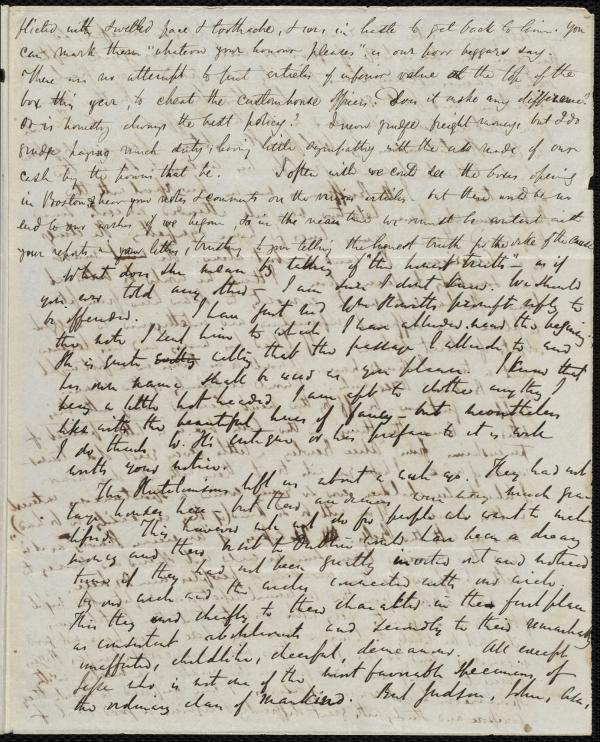 flicted with swelled face & toothache, & was in haste to get back to him. You
can mark them "whatever your honour pleases" as our poor beggars say.
There was no attempt to put articles of inferior value at the top of the
box this year to cheat the customhouse officers. Does it make any difference?
or is honesty always the best policy? I never grudge freight money, but I do
grudge paying much duty, having little sympathy with the use made of our
cash by the powers that be. I often wish we could see the boxes opening
in Boston, & hear your notes & comments on the various articles but there would be no
end to our wishes if we began, so in the mean time we must be content with
your reports & your letters, trusting to your telling the honest truth for the sake of the cause
What does she mean by talking of "the honest truth" — as if
you ever told any other — I am sure I don't know. We should
be offended. I have just had Wm Howitts prompt reply to
the note I sent him to which I have alluded near the beginning.
He is quite willing that the passage I allude to and
his own name shall be used as you please. I know that
being a little hot headed I am apt to clothe anything I
like with the beautiful hues of fancy — but nevertheless
I do think W. H's critique or his preface to it is well
worth your notice.
The Hutchinsons left us about a week ago. They had not
large houses here — but their audiences were very much grat
ified. This however will not do for people who want to make
money and their visit to Dublin would have been a dreary
time if they had not been greatly invited out and noticed
by our circle and the circles connected with our circle.
This they owed chiefly to their character in the first place
as consistent abolitionists and secondly to their remarkably
unaffected, childlike, cheerful, demeanour. All except
Jesse who is not one of the most favourable specimens of
the ordinary class of mankind. But Judson, John, Asa,